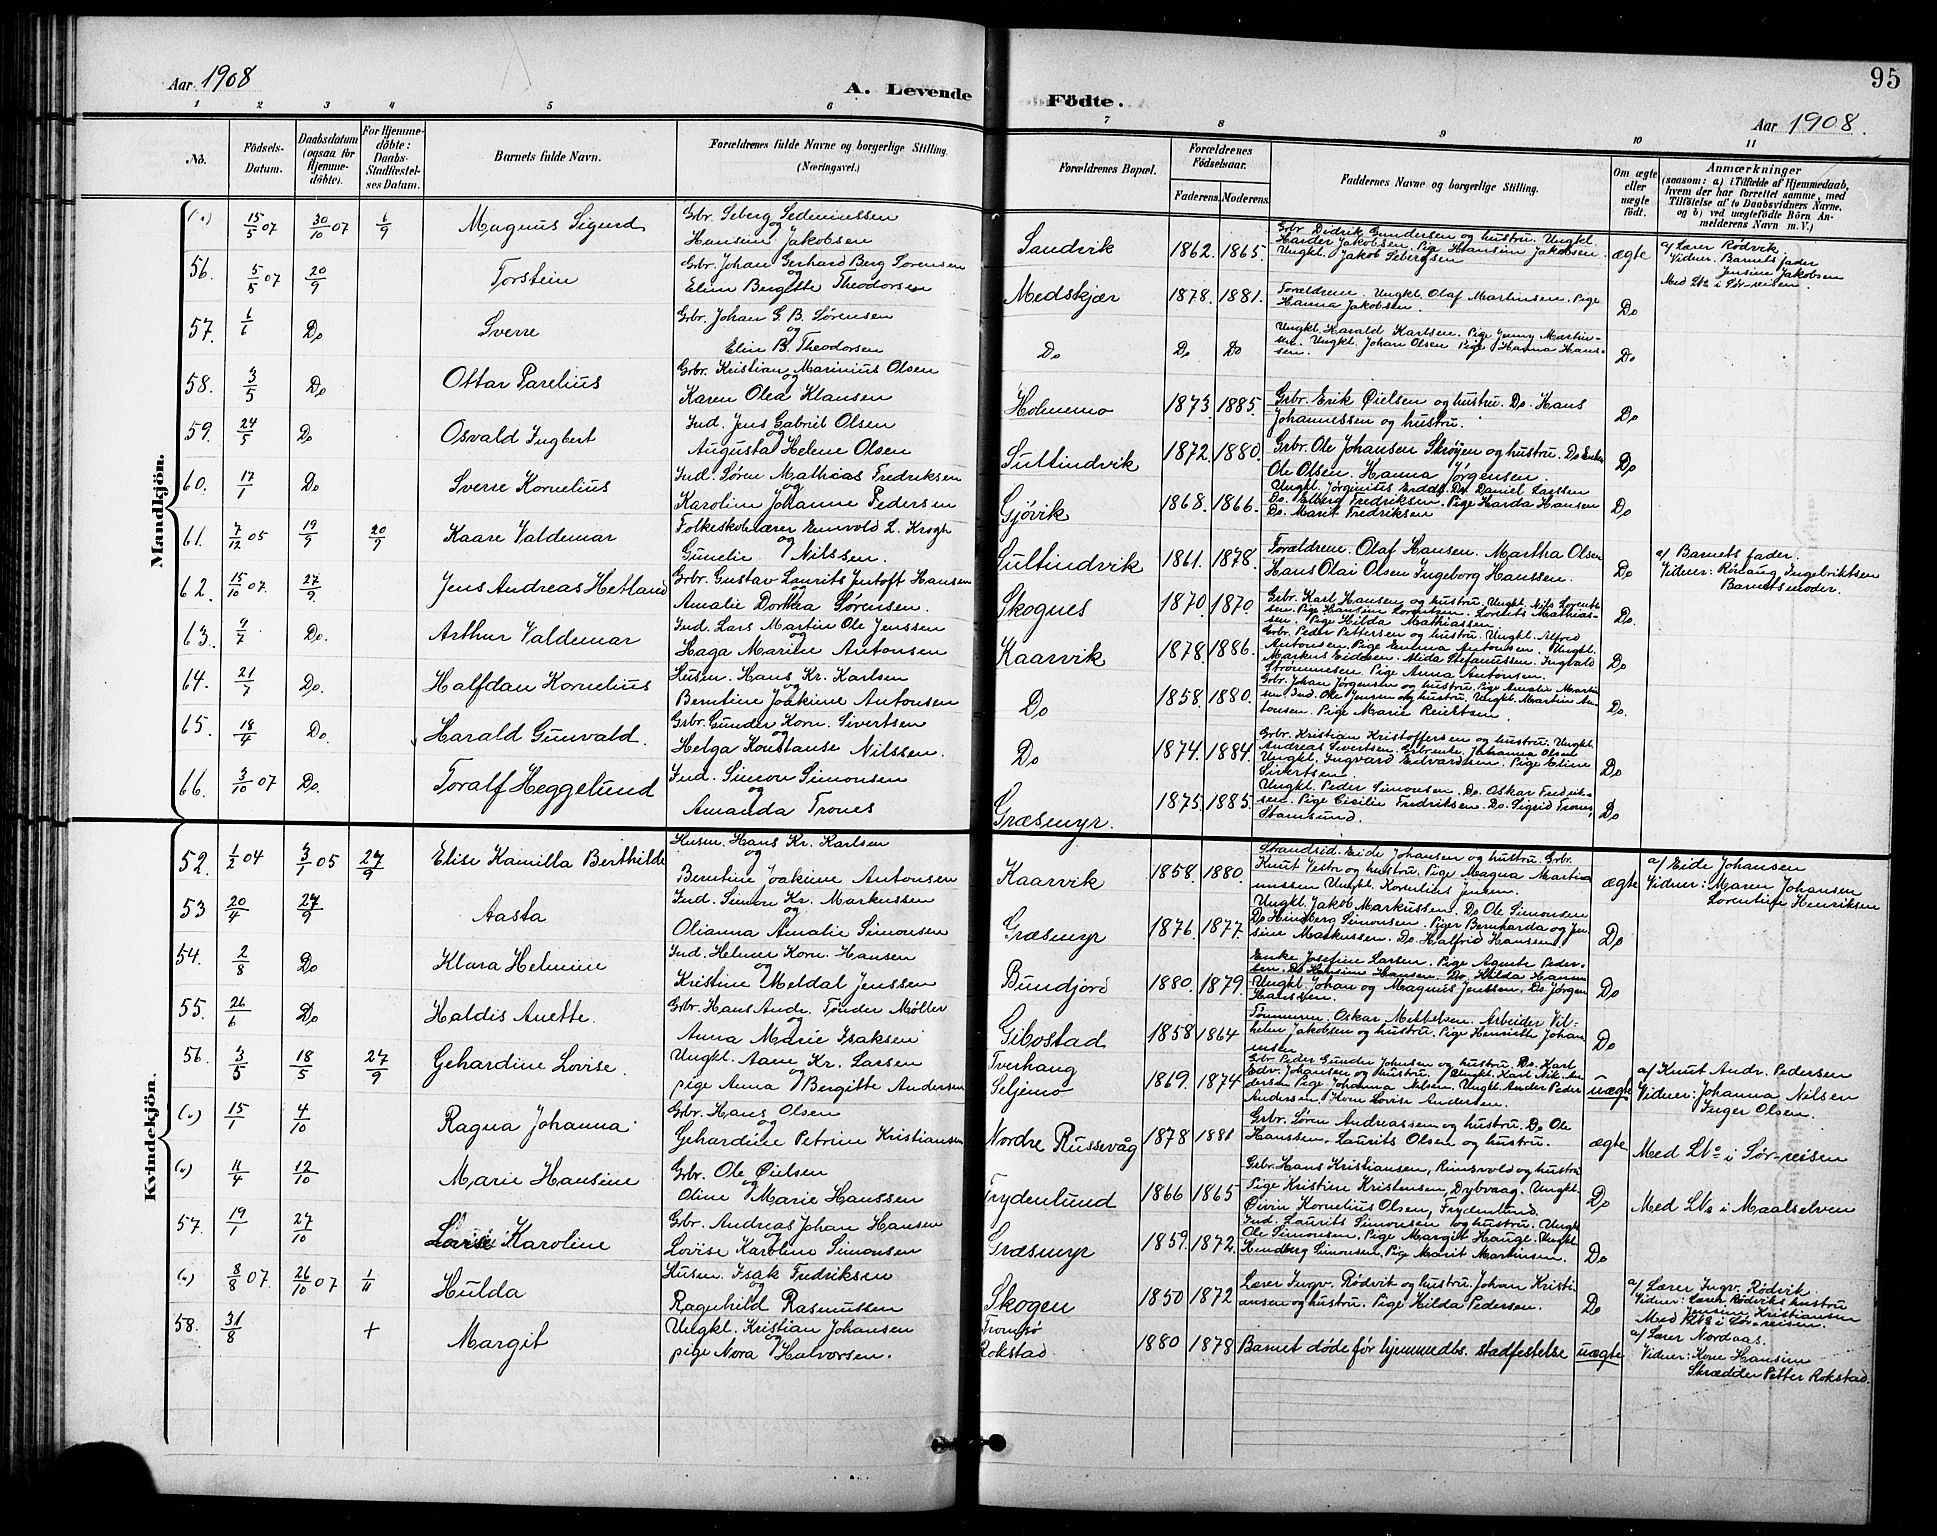 Aar 1908
A. Levende
Födte.
95
Aar 1908.
1 2 3 4 5 6 7 8 9 10 11
No.
Födsels-Datum.
Daabsdatum (ogsaa for Hjemme-döbte).
For Hjemme-döbte: Daabs-Stadfæstel-ses Datum.
Barnets fulde Navn.
Forældrenes fulde Navne og borgerlige Stilling. (Næringsvei.)
Forældrenes Bopæl.
Forældrenes Födselsaar.
Faderens. Moderens.
Faddernes Navne og borgerlige Stilling.
Om ægte eller uægte födt.
Anmærkninger
(saasom: a) i Tilfælde af Hjemmedaab, hvem der har forrettet samme, med Tilföielse af to Daabsvidners Navne. og b) ved uægtefödte Börn An-melderens Navn m. V.)
Mandkjön.
15/5 07 30/10 07 1/9 Magnus Sigurd
Grbr. Seberg Sedeniussen
og
Hansine Jakobsen
Sandvik 1862. 1865.
Grbr Didrik Gundersen og hustru. Ungkl.
Harder Jakobsen. Pige Hansine Jakobsen.
Ungkl. Jakob Sebergsen
ægte
a/ Lærer Rødvik
Vidner. Barnets fader
Jensine Jakobsen
Med LNo i Sør-reisen.
56. 5/5 07 20/9 Torstein
Grbr. Johan Gerhard Berg Sørensen
og
Eline Bergitte Theodorsen
Medskjær 1878. 1881.
Forældrene. Ungkl. Olaf Martinsen. Pige
Hanna Jakobsen.
Do
57. 1/1 Do Sverre
Grbr. Johan G. B. Sørensen
og
Elin B. Theodorsen
Do Do Do
Ungkl. Harald Karlsen. Pige Jenny Martin-
sen. Ungkl. Johan Olsen Pige Hanna Hans-
sen.
Do
58. 3/5 Do Ottar Parelius
Grbr. Kristian Marinius Olsen
og
Karen Olea Klausen
Holmemo 1873. 1885.
Grbr. Erik Øielsen og hustru. Do. Hans
Johannessen og hustru.
Do
59. 24/5 Do Osvald Ingbert
Ind. Jens Gabriel Olsen
Augusta Helene Olsen
Sultindvik 1872. 1880.
Grbr. Ole Johansen Skrøyen og hustru. Do Enke
Ole Olsen. Hanna Jørgensen
Do
60. 17/1 Do Sverre Kornelius
Ind. Søren Mathias Fredriksen
og
Karoline Johanne Pedersen
Gjøvik 1868. 1866.
Ungkl. Jørginius Do. Daniel Larssen
Do. Elberg Fredriksen. Pige Harda Hansen
Do. Marit Fredriksen
Do
61. 7/12 05 19/9 20/9 Kaare Valdemar
Folkeskolelærer Enevold L. Krogh
og
Gunelie Nilssen.
Sultindvik 1861. 1878.
Forældrene. Olaf Hansen. Martha Olsen
Hans Olai Olsen Ingeborg Hanssen.
Do
a/ Barnets fader.
Vidner: Rønaug Ingebriktsen
Barnets moder.
62. 15/10 07. 27/9 Jens Andreas Hetland
Grbr. Gustav Laurits Jentoft Hansen
og
Amalie Dorthea Sørensen.
Skognes 1870. 1870.
Grbr. Karl Hansen og hustru. Ungkl. Nils Lorent-
sen. Pige Hansine Lorentsen. Lorents Mathias-
sen. Pige Hilda Mathiassen
Do
63. Do. Arthur Valdemar
Ind. Lars Martin Ole Jenssen
og
Haga Marie Antonsen
Kaarvik 1878. 1886.
Grbr. Peder Pettersen og hustru. Ungkl. Alfred
Antonsen. Pige Emma Antonsen. Ungkl.
Markus Eidesen. Alida Stefanussen. Ingvald
Strømmesen. Pige Anna Antonsen.
Do
64. 21/7 Do. Halfdan Kornelius
Husm. Hans Kr. Karlsen
og
Berntine Joakine Antonsen
Do 1858. 1880.
Grbr. Johan Jørgensen og hustru. Pige Amalie Martin-
sen. Ind. Ole Jensen og hustru. Ungkl. Martin An-
tonsen. Pige Marie Reiertsen.
Do.
65. 18/4 Do. Harald Gunvald.
Grbr. Gunder Korn. Sivertsen
og
Helga Konstanse Nilssen.
Do 1874. 1884.
Grbr. Kristian Kristoffersen og hustru. Ungkl.
Andreas Sivertsen. Grbrenke Johanna Olsen
Ungkl. Ingvard Edvardsen. Pige Eline
Sivertsen.
Do
66. 3/10 07 Do. Toralf Heggelund
Ind. Simon Simonsen
og
Amanda Trones
Græsmyr. 1875. 1885.
Ungkl. Peder Simonsen. Do. Oskar Fredrik-
sen. Pige Cicilie Fredriksen. Do. Sigrid Trones,
Stamsund.
Do
Kvindekjön.
52. 1/2 04 3/1 05 27/9 Elise Kamilla Berthilde
Husm. Hans Kr. Karlsen
og
Berntine Joakine Antonsen
Kaarvik 1858. 1880.
Strandsid. Eide Johansen og hustru. Grbr.
Knut Vestr og hustru. Pige Magna Martin-
ussen Ungkl. Kornelius Jensen.
ægte
a/ Eide Johansen
Vidner: Maren Johansen
Lorentine Henriksen
53 20/4 27/9 Aasta
Ind. Simon Kr. Markussen
og
Olianna Amalie Simonsen
Græsmyr 1876. 1877.
Ungkl. Jakob Markussen. Do Ole Simonsen
Do Hindberg Simonsen. Piger Bernharda og Jen-
sine Markussen. Do. Halfrid Hansen
Do
54. 2/8 Do Klara Helmine
Ind. Helmer Korn. Hansen
og
Kristine Meldal Jenssen
Bundjord 1880. 1879.
Enke Josefine Larsen. Pige Agnete Peder-
sen. Do Hansine Hansen. Do. Hilda Hansen
Ungkl. Johan og Magnus Jenssen. Do Jørgen
Hanssen.
Do
55. 26/6 Do Haldis Anette.
Grbr. Hans Andr. Tønder Møller
og
Anna Marie Isaksen
Gibostad 1858 1864
Tømmerm. Oskar Mettelsen. Arbeider Vil-
helm Jakobsen og hustru. Pige Henriette Johan-
nesen
Do
56. 3/5 18/5 27/9 Gehardine Lovise.
Ungkl. Aane Kr. Larsen
pige Anna Bergitte Andersen
Tverhaug
Seljemo 1869. 1874
Grbr. Peder Gunder Johnsen og hustru. Do. Karl
Edv. Johansen og hustru. Ungkl. Karl Nik. An-
dersen Pige Johanna Nilsen. Ungkl. Ander Peder
Andersen. Kone Lovise Andersen.
uægte
a/ Knut Andr. Pedersen
Vidner: Johanna Nilsen
Inger Olsen.
15/1 4/10 Ragna Johanna
Grbr. Hans Olsen
og
Gehardine Petrine Kristiansen
Nordre Russevåg 1878 1881
Grbr. Søren Andreassen og hustru. Do Ole
Hanssen. Laurits Olsen og hustru.
ægte
Med LNo i Sør-reisen
11/4 12/10 Marie Hansine
Grbr. Ole Øielsen
og
Oline Marie Hanssen
Frydenlund 1866 1865
Grbr. Hans Kristiansen, Rinsvold og hustru
Pige Kristine Kristensen, Dybvaag. Ungkl.
Øivin Kornelius Olsen, Frydenlund.
Do
Med LNo i Maalselven
57. 19/1 27/10 Lovise Karoline
Grbr. Andreas Johan Hansen
Lovise Karoline Simonsen
Græsmyr 1859. 1872.
Ind. Laurits Simonsen og hustru. Ungkl
Ole Simonsen. Pige Margit Hauge. Ungkl
Hindberg Simonsen, Pige Marit Martinsen.
Do
8/8 07. 26/10 07 1/11 Hulda
Husm. Isak Fredriksen
Ragnhild Rasmussen
Skogen 1850 1872
Lærer Ingv. Rødvik og hustru. Johan Kristi-
ansen og hustru. Pige Hilda Pedersen.
Do
a/ Lærer Ingv. Rødvik.
Vidner: Lærer Rødviks hustru
Jensine Kristiansen
Med LNo i Sør-reisen.
58. 31/8 + Margit
Ungkl. Kristian Johansen
pige Nora Halvorsen.
Tromsø
Rokstad 1880 1878
Barnet døde før hjemmedbs. stadfestelse
uægte
a/ Lærer Nordaas.
Vidner: Kone Hansine
Skrædder Petter Rokstad.